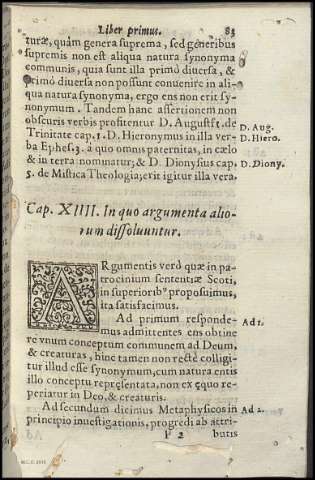 Liber primus. 83
turæ, quàm genera suprema, sed generibus
supremis non est aliqua natura synonyma
communis, quia sunt illa primò diuersa, &
primò diuersa non possunt conuenire in ali-
qua natura synonyma, ergo ens non erit sy-
nonymum. Tandem hanc assertionem non
obscuris verbis profitentur D. August. de D. Aug.
Trinitate cap. 1. D. Hieronymus in illa ver- D. Hiero.
ba Ephes. 3. à quo omnis paternitas, in cælo
& in terra nominatur; & D. Dionysius cap. D. Diony.
5. de Mistica Theologia; erit igitur illa vera.
Cap. XIIII. In quo argumenta alio-
rum dissoluuntur.
ARgumentis verò quæ in pa-
trocinium sententiæ Scoti,
in superiorib9 proposuimus,
ita satisfacimus.
Ad primum responde- Ad 1.
mus admittentes ens obtine
re vnum conceptum communem ad Deum,
& creaturas, hinc tamen non rectè colligi-
tur illud esse synonymum, cum natura entis
illo conceptu repręsentata, non ex ęquo re-
periatur in Deo, & creaturis.
Ad secundum dicimus Metaphysicos in Ad 2.
principio inuestigationis, progredi ab attri-
F 2 butis